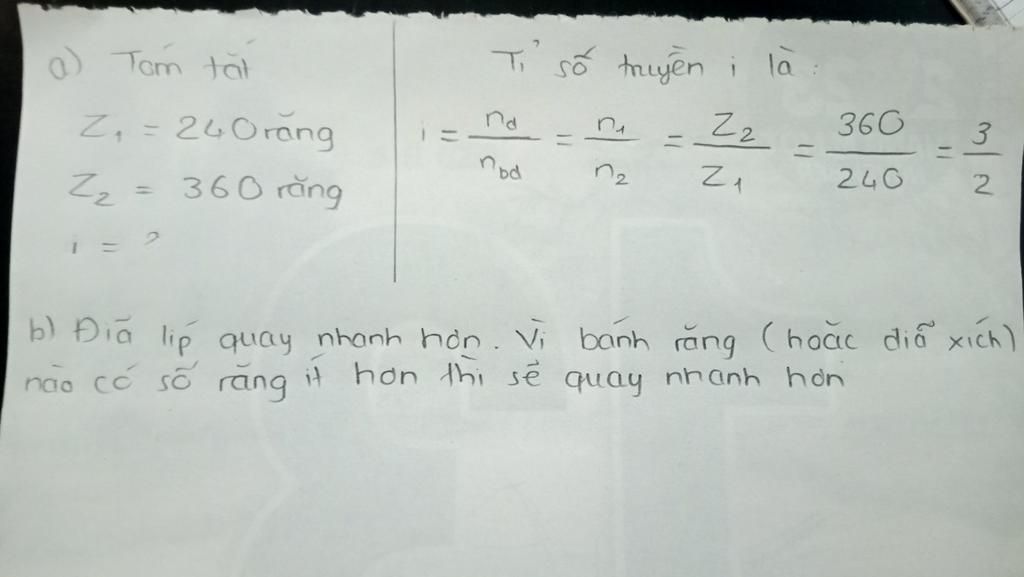 a) Tóm tắt
Z1 = 240 răng
Z2 = 360 răng
i = ?
Tỉ số truyền i là:
i = nd/nbd = n1/n2 = Z2/Z1 = 360/240 = 3/2
b) Đĩa líp quay nhanh hơn. Vì bánh răng (hoặc điã xích)
nào có số răng ít hơn thì sẽ quay nhanh hơn